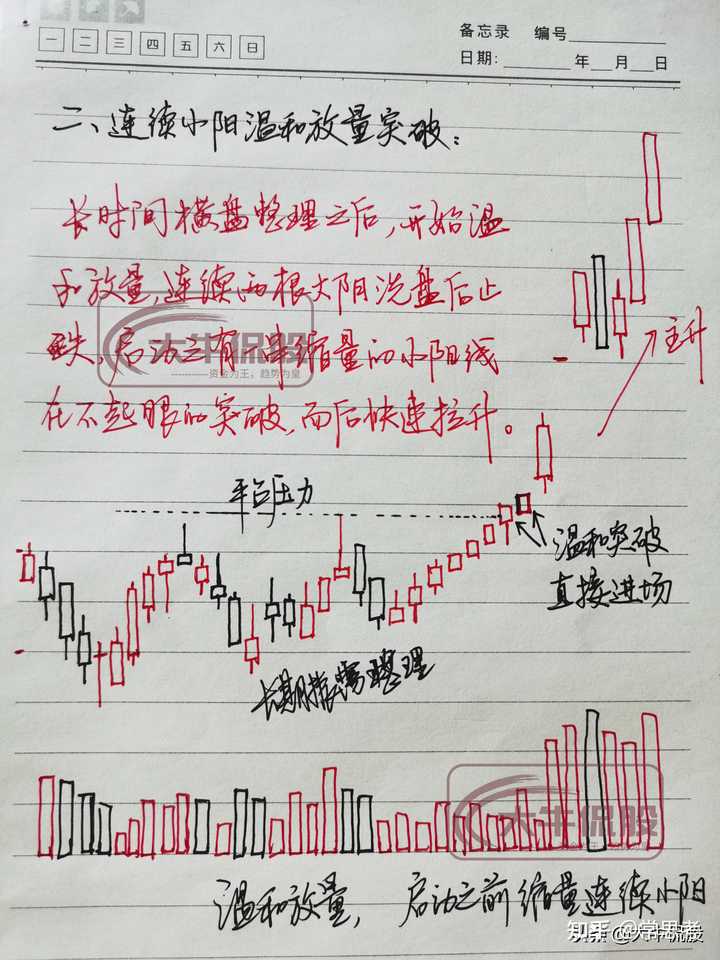 备忘录 编号
一 二 三 四 五 六 日
日期: 年 月 日
二、连续小阳温和放量突破:
长时间横盘整理之后,开始温
和放量,连续两根大阳洗盘后止
跌,启动之有一串缩量的小阳线
在不起眼的突破,而后快速拉升。
大牛侃股
资金为王,趋势为皇
主升
平台压力
温和突破
直接进场
长期震荡整理
大牛侃股
温和放量, 启动之前缩量连续小阳
知乎 @学思考
头条 @大牛侃股